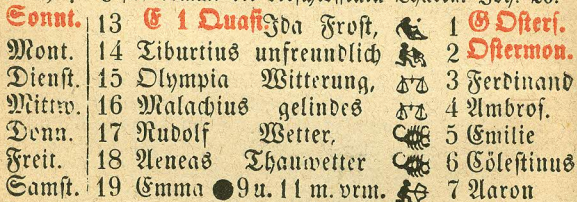 Sonnt. 13 E 1 Quasi. Ida Frost, 1 G Osters.
Mont. 14 Tiburtius unfreundlich 2 Ostermon.
Dienst. 15 Olympia Witterung, 3 Ferdinand
Mittw. 16 Malachius gelindes 4 Ambros.
Donn. 17 Rudolf Wetter, 5 Emilie
Freit. 18 Aeneas Thauwetter 6 Cölestinus
Samst. 19 Emma 9 u. 11 m. vrm. 7 Aaron